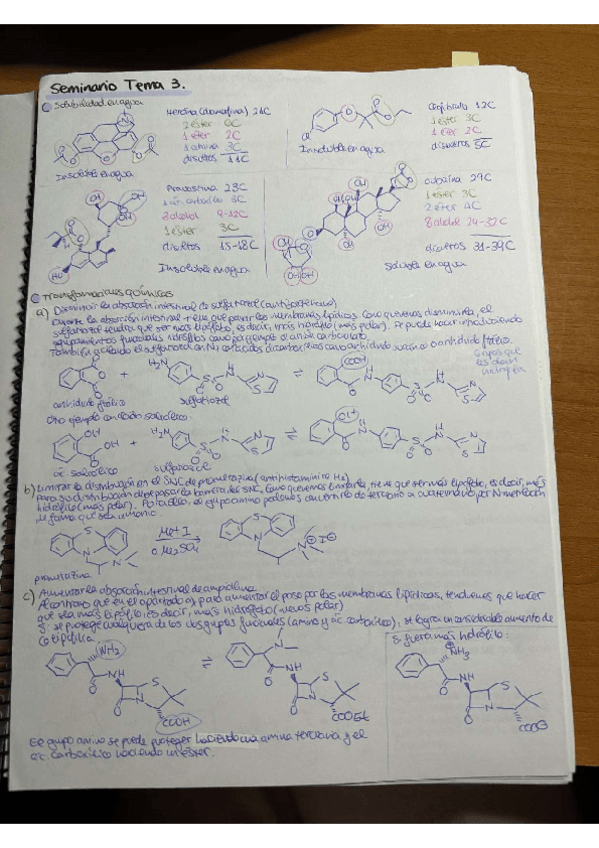 Seminario Tema 3.
Solubilidad en agua
Heroína (diamorfina) 21C
2 éster 6C
1 éter 2C
1 amina 3C
disueltos 11C
Insoluble en agua
Clofibrato 12C
1 éster 3C
1 éter 2C
disueltos 5C
Insoluble en agua
Pravastina 23C
1 ác. carboxílico 3C
3 alcohol 9-12C
1 éster 3C
disueltos 15-18C
Insoluble en agua
OH
HO
oubaína 29C
1 éster 3C
2 éter 4C
8 alcohol 24-32C
disueltos 31-39C
Soluble en agua
OH
Transformaciones químicas
a) Disminuir la absorción intestinal de sulfatiazol (antibacteriano)
Durante la absorción intestinal tiene que pasar las membranas lipídicas. Como queremos disminuirla, el
sulfatiazol tendrá que ser más lipófobo, es decir, más hidrófilo (más polar). Se puede hacer introduciendo
agrupamientos funcionales hidrófilos como por ejemplo el ácido carboxílico.
También acilando el sulfatiazol en N4 con ácidos dicarboxílicos como anhídrido succínico o anhídrido ftálico.
Grupos que
les dan
anhídrido ftálico
sulfatiazol
COOH
Otro ejemplo con ácido salicílico:
ác. salicílico
sulfatiazol
OH
b) Limitar la distribución en el SNC de prometazina (antihistamínico H1)
Para su distribución debe pasar la barrera del SNC. Como queremos limitarla, tiene que ser más lipófobo, es decir, más
hidrófilo (más polar). Para ello, el grupo amino podemos convertirlo de terciario a cuaternario por N-metilación
de forma que sea iónico.
Me-I
o Me2SO4
prometazina
c) Aumentar la absorción intestinal de ampicilina
Al contrario que en el apartado a), para aumentar el paso por las membranas lipídicas, tendremos que hacer
que sea más lipófilo, es decir, más hidrófobo (menos polar)
Si se protege cualquiera de los dos grupos funcionales (amino y ác. carboxílico), se logra un considerable aumento de
la lipofilia.
NH2
COOH
COOEt
Si fuera más hidrófilo:
NH3
COO
El grupo amino se puede proteger haciendo una amina terciaria y el
ác. carboxílico haciendo un éster.